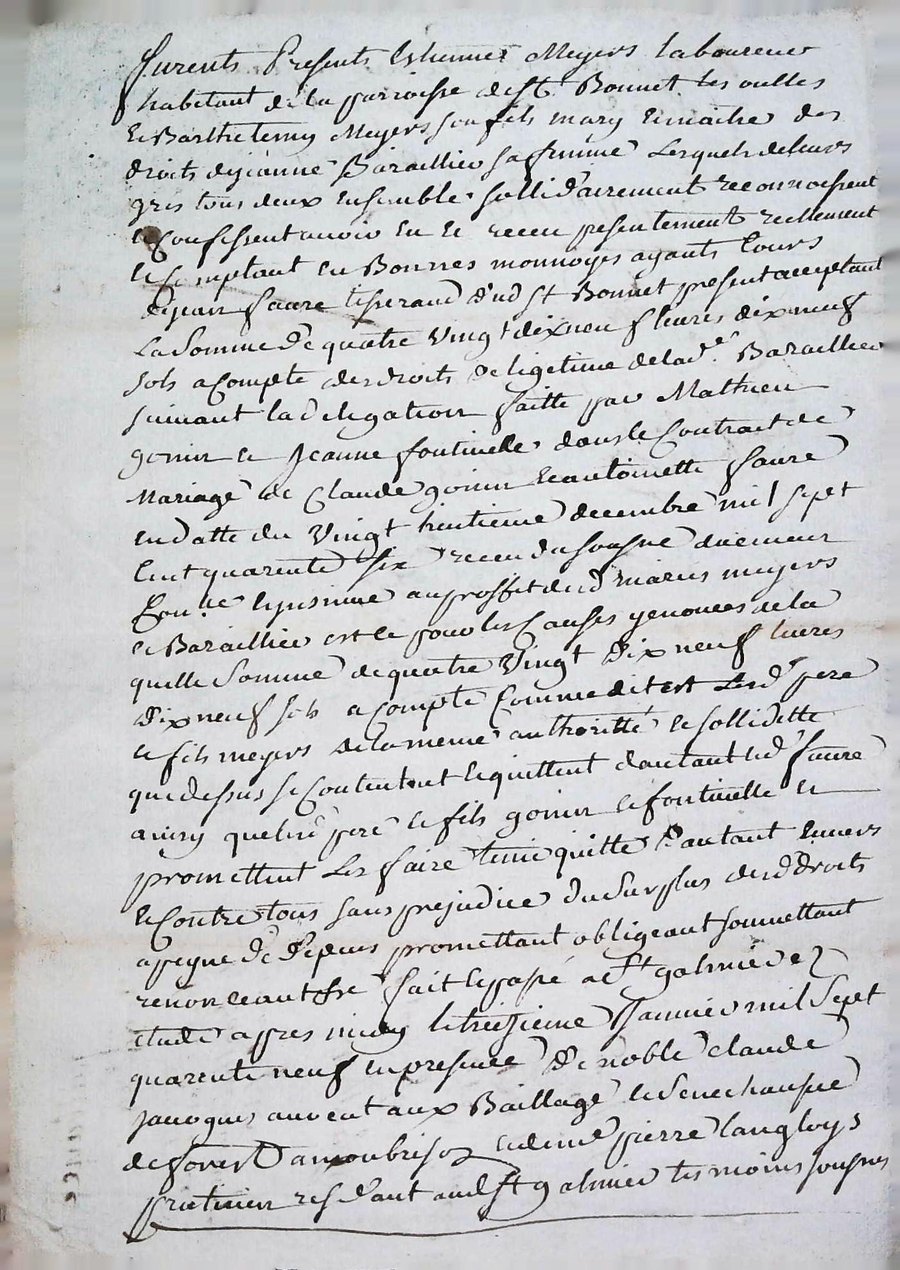 furents Presents Esthienne Meyers laboureur
habitant de la parroisse de St Bonnet les oulles
et Barthelemy Meyers son fils mary et maitre des
droits de jeanne Baraillier sa femme Lesquels de leurs
gres tous deux ensemble sollidairement reconnoissent
et confessent avoir eu et receu presentement reellement
et comptant en Bonnes monnoyes ayants cours
de jean faure tisserand dud St Bonnet present acceptant
La Somme de quatre vingt dix neuf livres dix neuf
sols a compte des droits de legitime de lade Baraillier
suivant la delegation faitte par Mathieu
gonin et Jeanne fontinelle dans le Contract de
Mariage de Claude gonin et antoinette faure
en datte du vingt huitieme decembre mil sept
cent quarente six receu du sousne
au proffit desd maries meyers
et Baraillier et pour les Causes y enoncees de la
quelle Somme de quatre vingt dix neuf livres
dix neuf sols a compte Comme dit est Lesd pere
et fils meyers de la meme authoritté et sollidette
que dessus se contentent et quittent d'autant led faure
ainsy que pere et fils gonin et fontinelle et
promettent Les faire tenir quitte d'autant envers
et contre tous sans prejudice du Surplus desd droits
a peyne de depens promettant obligeant soumettant
renonceant fait et passé a St galmier ez
etude appres midy le treizieme Janvier mil Sept
quarente neuf en presence de noble claude
jacoques avocat aux Baillage et Senechaussée
de forest a montbrison et de me pierre langloys
praticien residant aud St galmier tesmoins sousnes